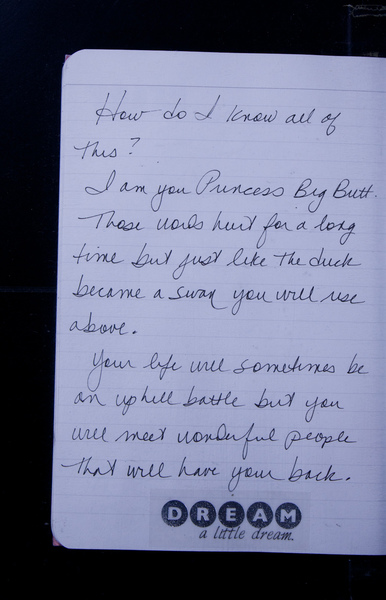 How do I know all of
this?
I am you Princess Big Butt.
Those words hurt for a long
time but just like the duck
became a swan you will rise
above.
Your life will sometimes be
an uphill battle but you
will meet wonderful people
that will have your back.
DREAM
a little dream.